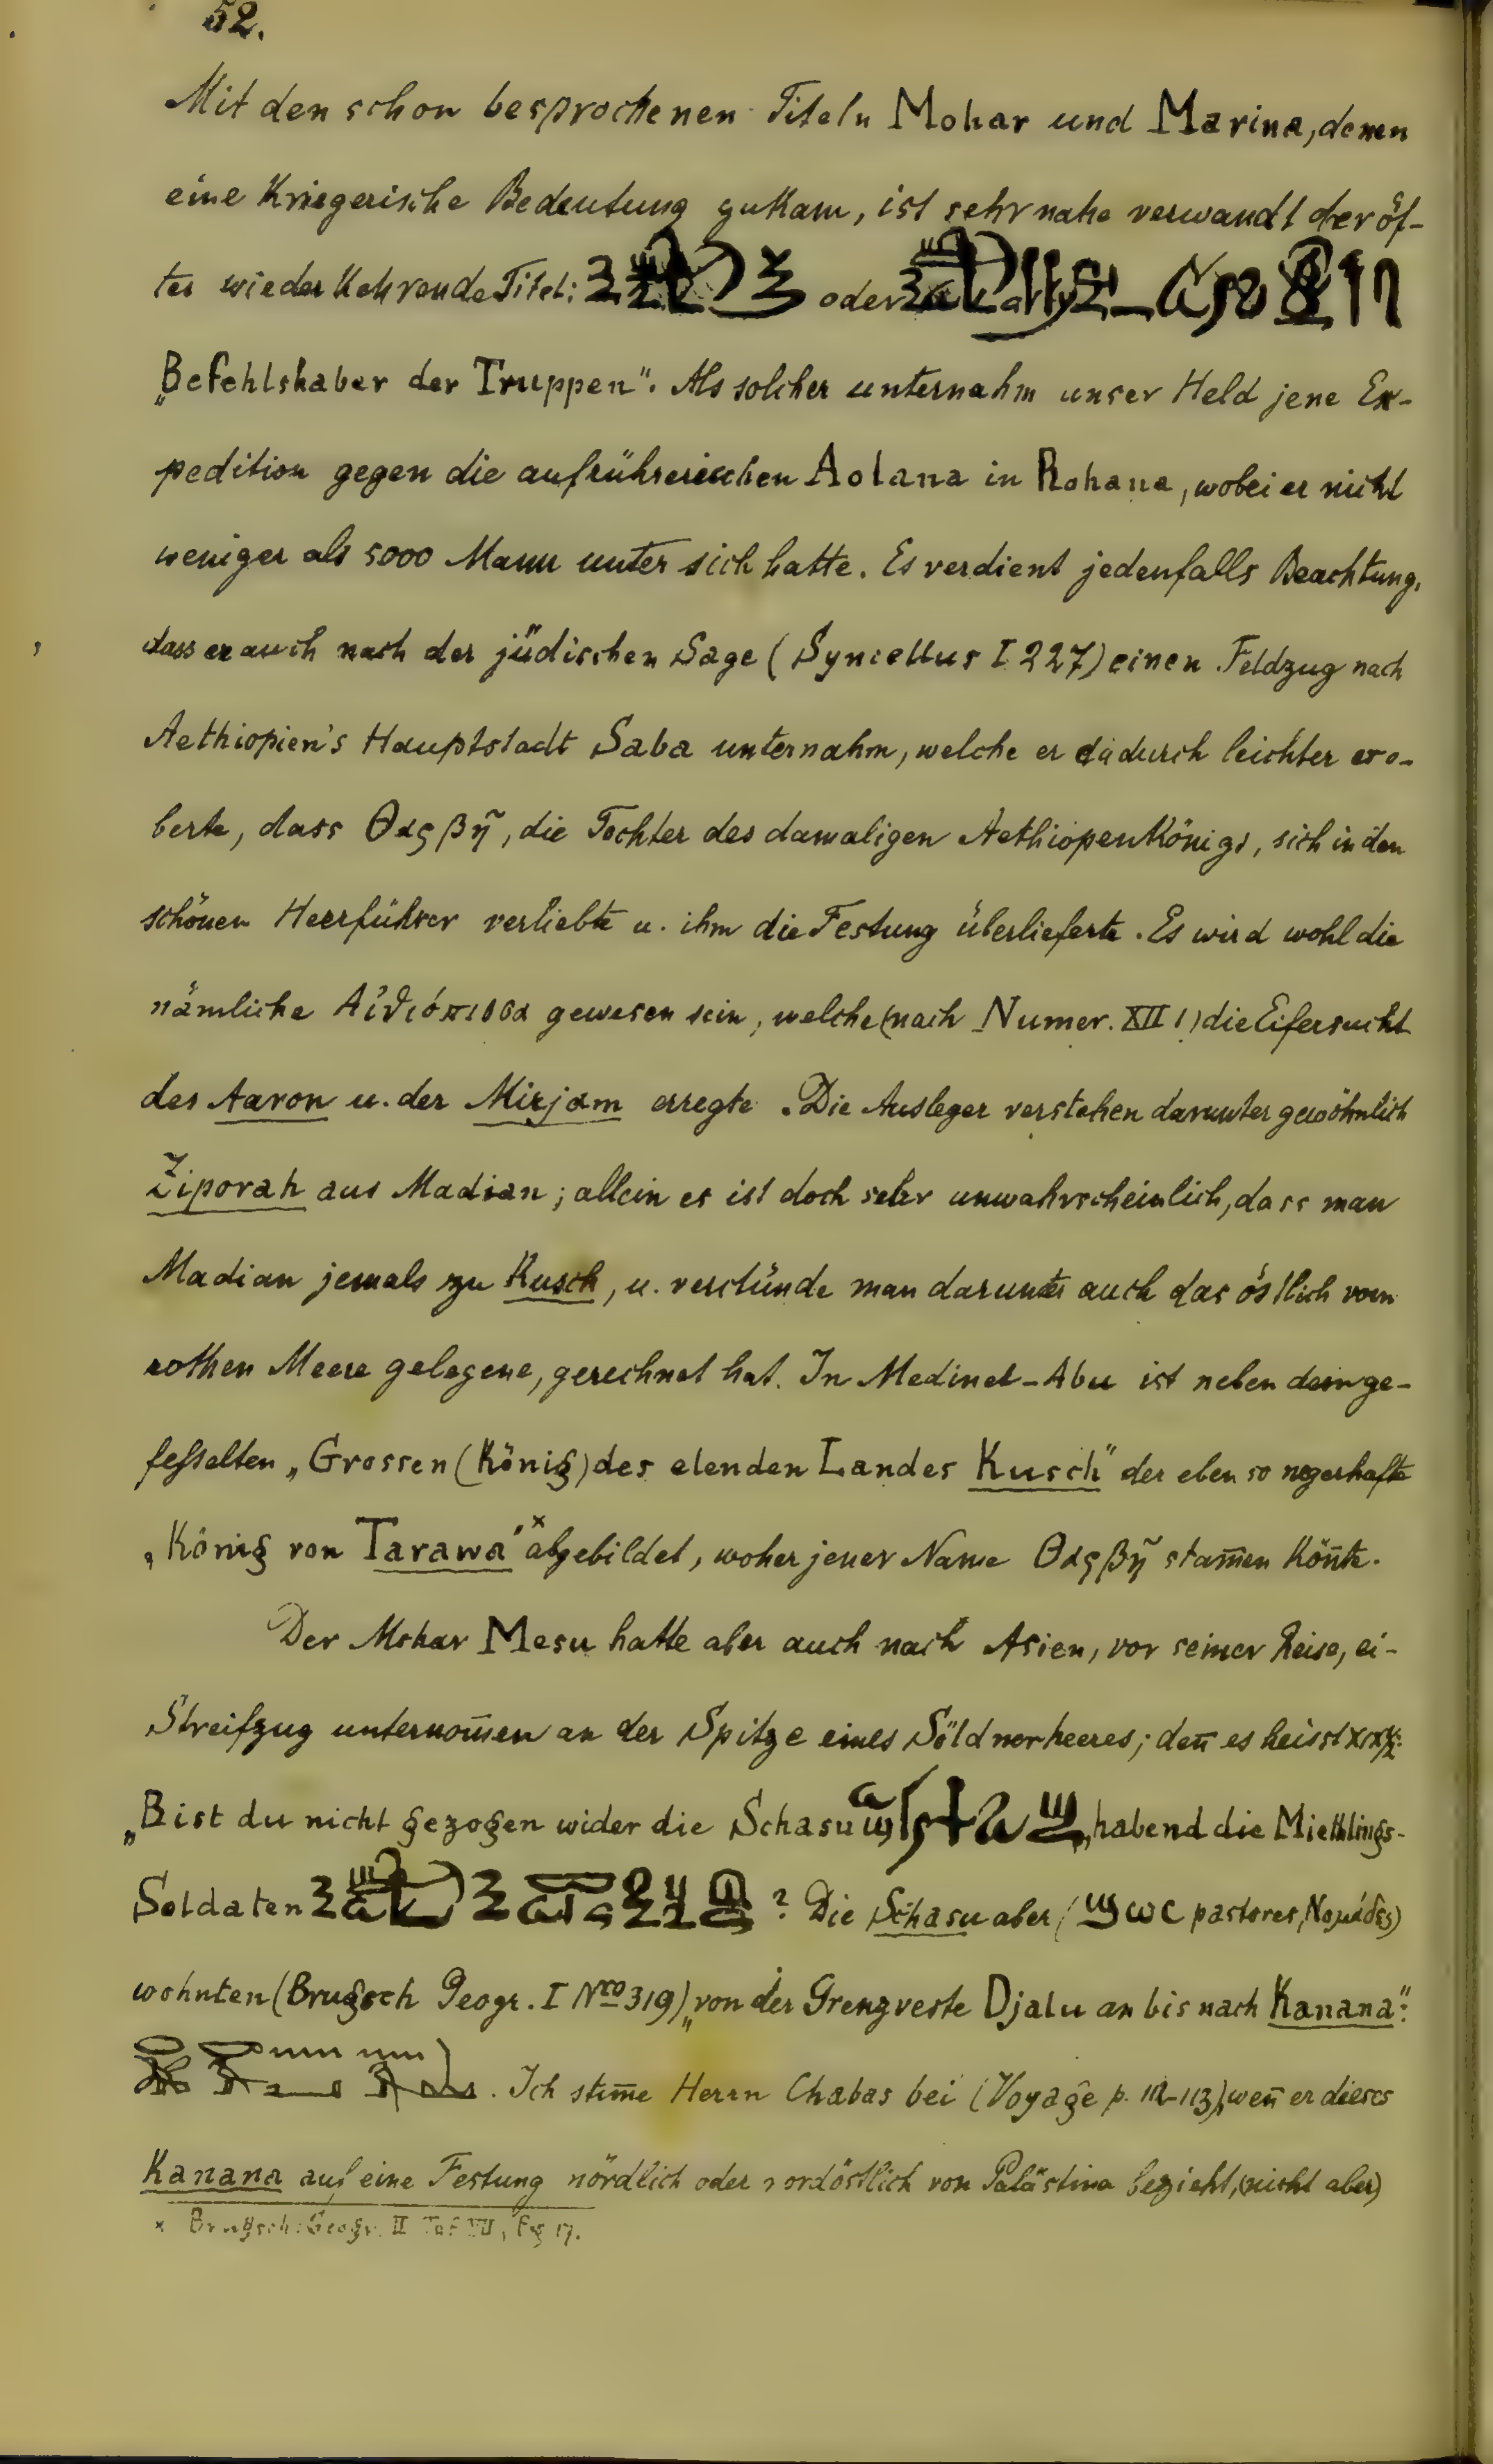 52.
Mit den schon besprochenen Titeln Mohar und Marina, denen
eine Kriegerische Bedeutung zukam, ist sehr nahe verwandt der öf-
ter wiederkehrende Titel: oder
„Befehlshaber der Truppen“. Als solcher unternahm unser Held jene Ex-
pedition gegen die aufrührerischen Aolana in Rohana, wobei er nicht
weniger als 5000 Mann unter sich hatte. Es verdient jedenfalls Beachtung,
dass er auch nach der jüdischen Sage (Syncellus I 227) einen Feldzug nach
Aethiopien's Hauptstadt Saba unternahm, welche er dadurch leichter ero-
berte, dass Θαρβῆ, die Tochter des damaligen Aethiopenkönigs, sich in den
schönen Heerführer verliebte u. ihm die Festung überlieferte. Es wird wohl die
nämliche Αἰθιόπισσα gewesen sein, welche (nach Numer. XII 1) die Eifersucht
des Aaron u. der Mirjam erregte. Die Ausleger verstehen darunter gewöhnlich
Ziporah aus Madian; allein es ist doch sehr unwahrscheinlich, dass man
Madian jemals zu Kusch, u. verstünde man darunter auch das östlich vom
rothen Meere gelegene, gerechnet hat. In Medinet-Abu ist neben dem ge-
fesselten „Grossen (König) des elenden Landes Kusch“ der eben so negerhafte
„König von Tarawa“ x abgebildet, woher jener Name Θαρβῆ stam̄en kön̄te.
Der Mohar Mesu hatte aber auch nach Asien, vor seiner Reise, ei-
Streifzug unternom̄en an der Spitze eines Söldnerheeres; den̄ es heisst
„Bist du nicht gezogen wider die Schasu habend die Miethlings-
Soldaten ? Die Schasu aber (ϣωс pastores, Νομάδες)
wohnten (Brugsch Geogr. I Nro 319) „von der Grenzveste Djalu an bis nach Kanana“:
. Ich stim̄e Herrn Chabas bei (Voyage p. 112-113), wen̄ er dieses
Kanana auf eine Festung nördlich oder nordöstlich von Palästina bezieht, (nicht aber)
x Brugsch: Geogr. II Taf VII, Fg 17.